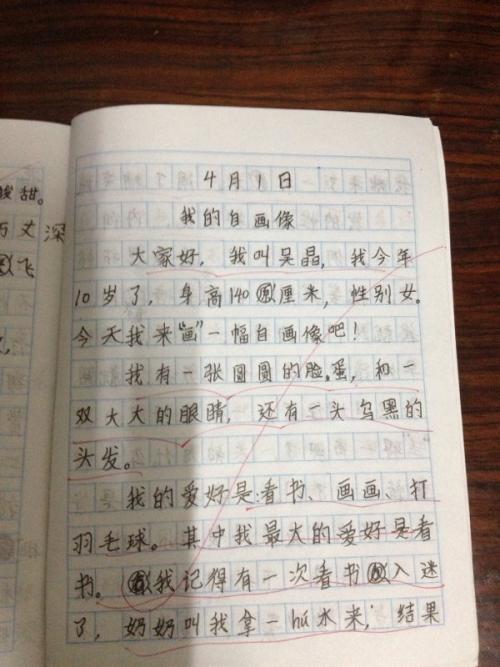 酸甜。
万丈深
飞
4月1日
我的自画像
大家好，我叫吴晶，我今年
10岁了，身高140厘米，性别女。
今天我来“画”一幅自画像吧！
我有一张圆圆的脸蛋，和一
双大大的眼睛，还有一头乌黑的
头发。
我的爱好是看书、画画、打
羽毛球。其中我最大的爱好是看
书。我记得有一次看书入迷
了，奶奶叫我拿一hú水来，结果